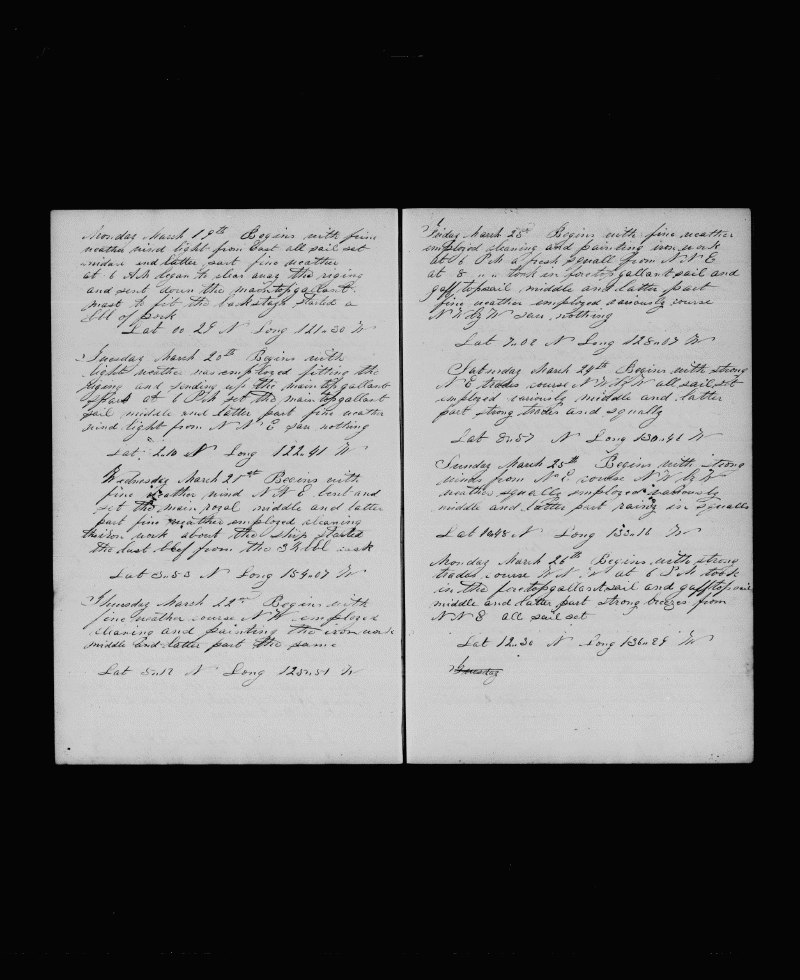 Monday March 19th Begins with fine
weather wind light from East all sail set
midar and latter part fine weather
at 6 AM began to clear away the riging
and sent down the maintopgallant
mast to fit the backstays started a
bbl of pork
Lat 00 29 N Long 121.30 W
Tuesday March 20th Begins with
light weather was employed fitting the
riging and sending up the main topgallant
spars at 6 PM set the maintopgallant
sail middle and latter part fine weather
wind light from N N E saw nothing
Lat 2.10 N Long 122.41 W
Wednesday March 21st Begins with
fine weather wind N N E bent and
set the main royal middle and latter
part fine weather employed cleaning
the iron work about the ship started
the last beef from the 34 bbl cask
Lat 3.53 N Long 154.07 W
Thursday March 22nd Begins with
fine weather course N W employed
cleaning and painting the iron work
middle and latter part the same
Lat 5.12 N Long 125.51 W
Friday March 23d Begins with fine weather
employed cleaning and painting iron work
at 6 PM a fresh squall from N N E
at 8 " " took in foretopgallantsail and
gafftopsail middle and latter part
fine weather employed variously course
N W by W saw nothing
Lat 7.02 N Long 128.07 W
Saturday March 24th Begins with strong
N E trades course N W by W all sail set
employed variously middle and latter
part strong trades and squally
Lat 8.57 N Long 130.41 W
Sunday March 25th Begins with strong
winds from N E course N W by W
weather squally employed variously
middle and latter part rainy in squalls
Lat 10.48 N Long 133.16 W
Monday March 26th Begins with strong
trades course W N W at 6 P M took
in the foretopgallantsail and gafftopsail
middle and latter part strong breezes from
N N E all sail set
Lat 12.30 N Long 136.29 W
Tuesday